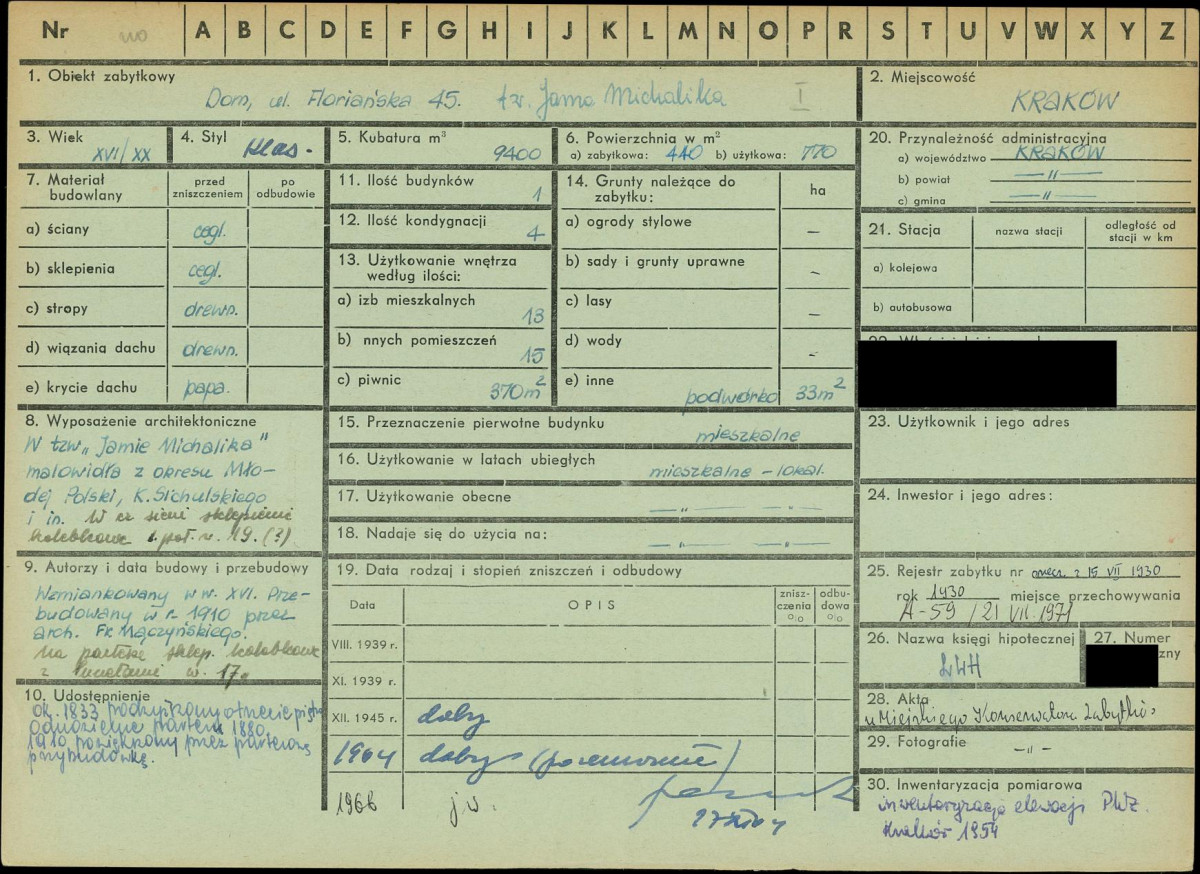 Nr A B C D E F G H I J K L M N O P R S T U V W X Y Z
1. Obiekt zabytkowy
Dom, ul. Floriańska 45. tzw. Jama Michalika I
2. Miejscowość
KRAKÓW
3. Wiek
XVI/XX
4. Styl
klas.
5. Kubatura m³
9400
6. Powierzchnia w m²
a) zabytkowa: 440 b) użytkowa: 770
7. Materiał budowlany
przed zniszczeniem
po odbudowie
a) ściany cegl.
b) sklepienia cegl.
c) stropy drewn.
d) wiązania dachu drewn.
e) krycie dachu papa.
8. Wyposażenie architektoniczne
W tzw „Jamie Michalika"
malowidła z okresu Mło-
dej Polski, K. Sichulskiego
i in. W sieni sklepienie
kolebkowe 1. poł. w. 19. (?)
9. Autorzy i data budowy i przebudowy
Wzmiankowany w w. XVI. Prze-
budowany w r. 1910 przez
arch. Fr. Mączyńskiego.
Na parterze sklep. kolebkowe
z lunetami w. 17.
10. Udostępnienie
ok. 1833
parteru 1880
1910 powiększony przez parterową
przybudówkę.
11. Ilość budynków
1
12. Ilość kondygnacji
4
13. Użytkowanie wnętrza
według ilości:
a) izb mieszkalnych
13
b) nnych pomieszczeń
15
c) piwnic
370m²
14. Grunty należące do
zabytku:
ha
a) ogrody stylowe –
b) sady i grunty uprawne –
c) lasy –
d) wody –
e) inne podwórko 33m²
15. Przeznaczenie pierwotne budynku
mieszkalne
16. Użytkowanie w latach ubiegłych
mieszkalne – lokal.
17. Użytkowanie obecne
— „ —
18. Nadaje się do użycia na:
— „ —
19. Data rodzaj i stopień zniszczeń i odbudowy
Data
OPIS
znisz-
czenia
%
odbu-
dowa
%
VIII. 1939 r.
XI. 1939 r.
XII. 1945 r. dobry
1964 dobry
1966 jw.
20. Przynależność administracyjna
a) województwo KRAKÓW
b) powiat — „ —
c) gmina — „ —
21. Stacja
nazwa stacji
odległość od
stacji w km
a) kolejowa
b) autobusowa
23. Użytkownik i jego adres
24. Inwestor i jego adres:
25. Rejestr zabytku nr orzecz. z 15 VII 1930
rok 1930 miejsce przechowywania
A-59 / 21 VII. 1971
26. Nazwa księgi hipotecznej
LWH
27. Numer
zny
28. Akta
u Miejskiego Konserwatora Zabytków
29. Fotografie – „ –
30. Inwentaryzacja pomiarowa
inwentaryzacja elewacji PKZ.
Kraków 1954